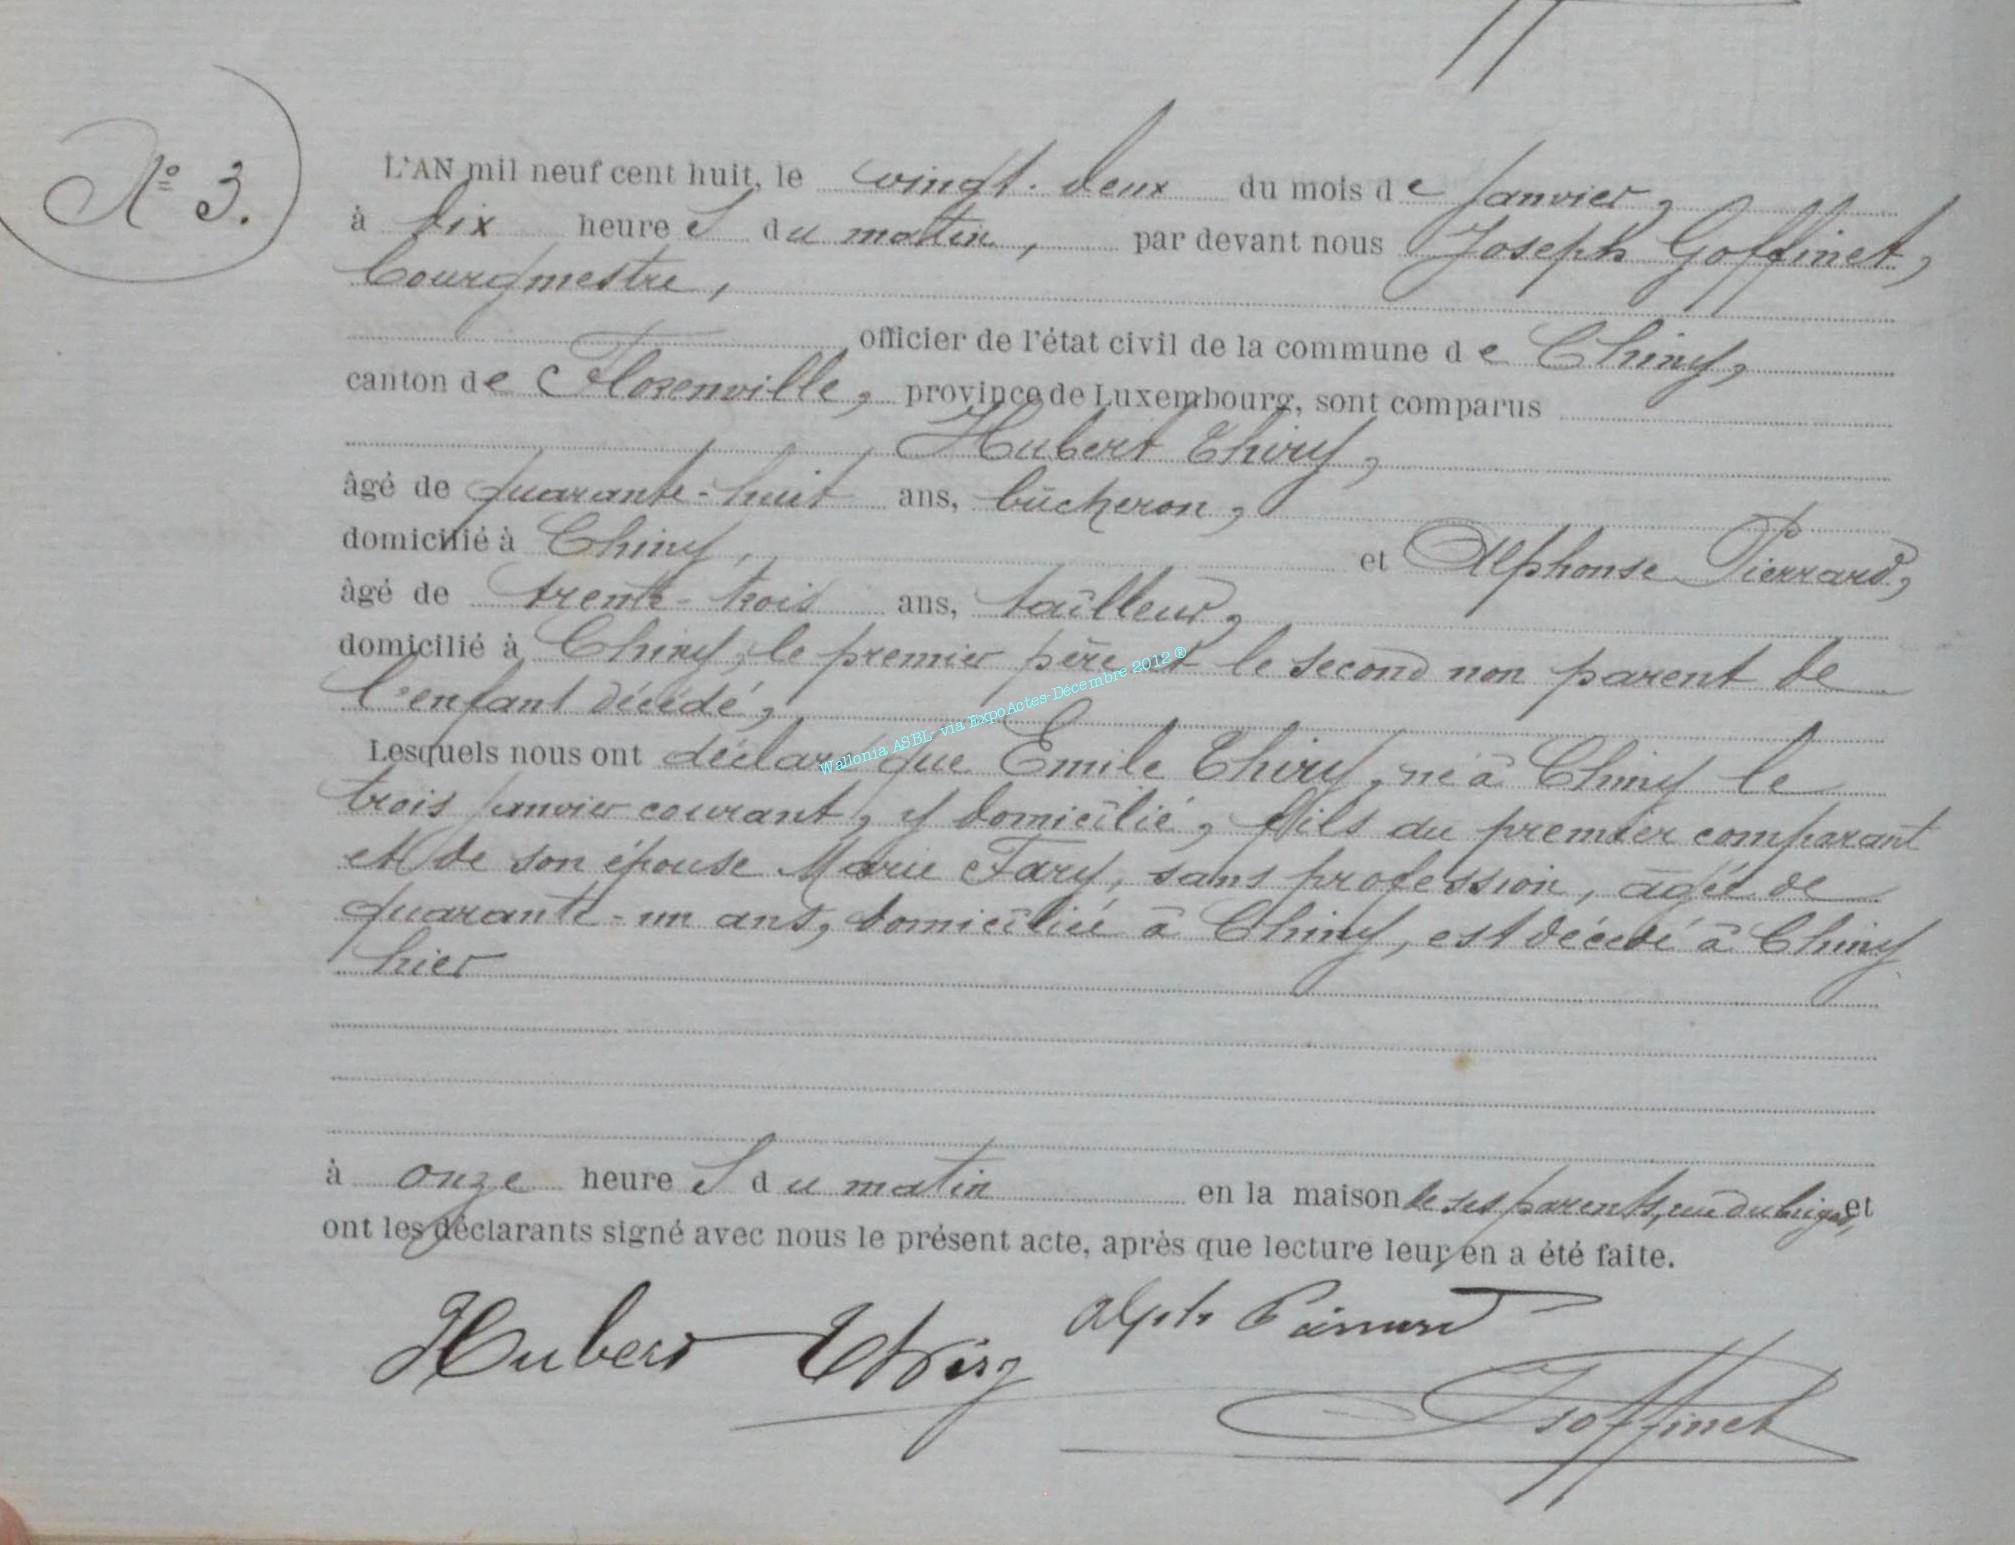 N° 3.
L'AN mil neuf cent huit, le vingt-deux du mois de Janvier,
à dix heures du matin, par devant nous Joseph Goffinet,
bourgmestre,
officier de l'état civil de la commune de Chiny,
canton de Florenville, province de Luxembourg, sont comparus
Hubert Thiry,
âgé de quarante-huit ans, bûcheron,
domicilié à Chiny, et Alphonse Pierrard,
âgé de trente-trois ans, tailleur,
domicilié à Chiny, le premier père et le second non parent de
l'enfant décédé,
Lesquels nous ont déclaré que Emile Thiry, né à Chiny le
trois janvier courant, y domicilié, fils du premier comparant
et de son épouse Marie Fary, sans profession, âgée de
quarante-un ans, domiciliée à Chiny, est décédé à Chiny
hier
à onze heures du matin en la maison de ses parents, rue du et
ont les déclarants signé avec nous le présent acte, après que lecture leur en a été faite.
Hubert Thiry Alph Pierrard
JGoffinet
Wallonia ASBL- via ExpoActes-Décembre 2012 ®